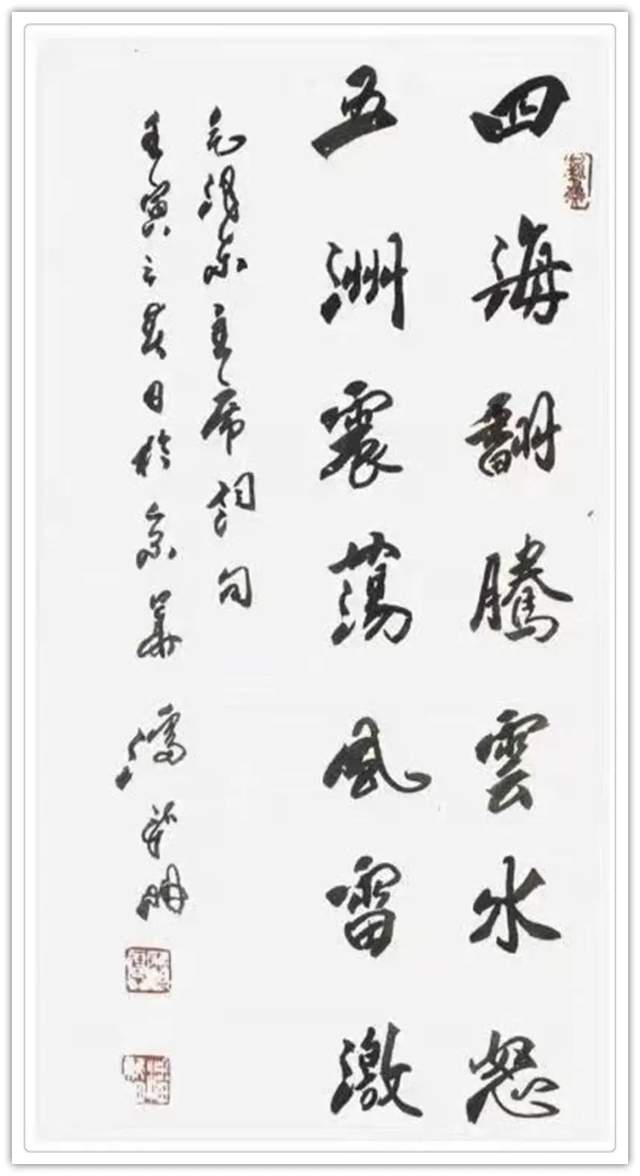 四海翻騰雲水怒
五洲震蕩風雷激
毛澤東主席詞句
壬寅之春日於京華